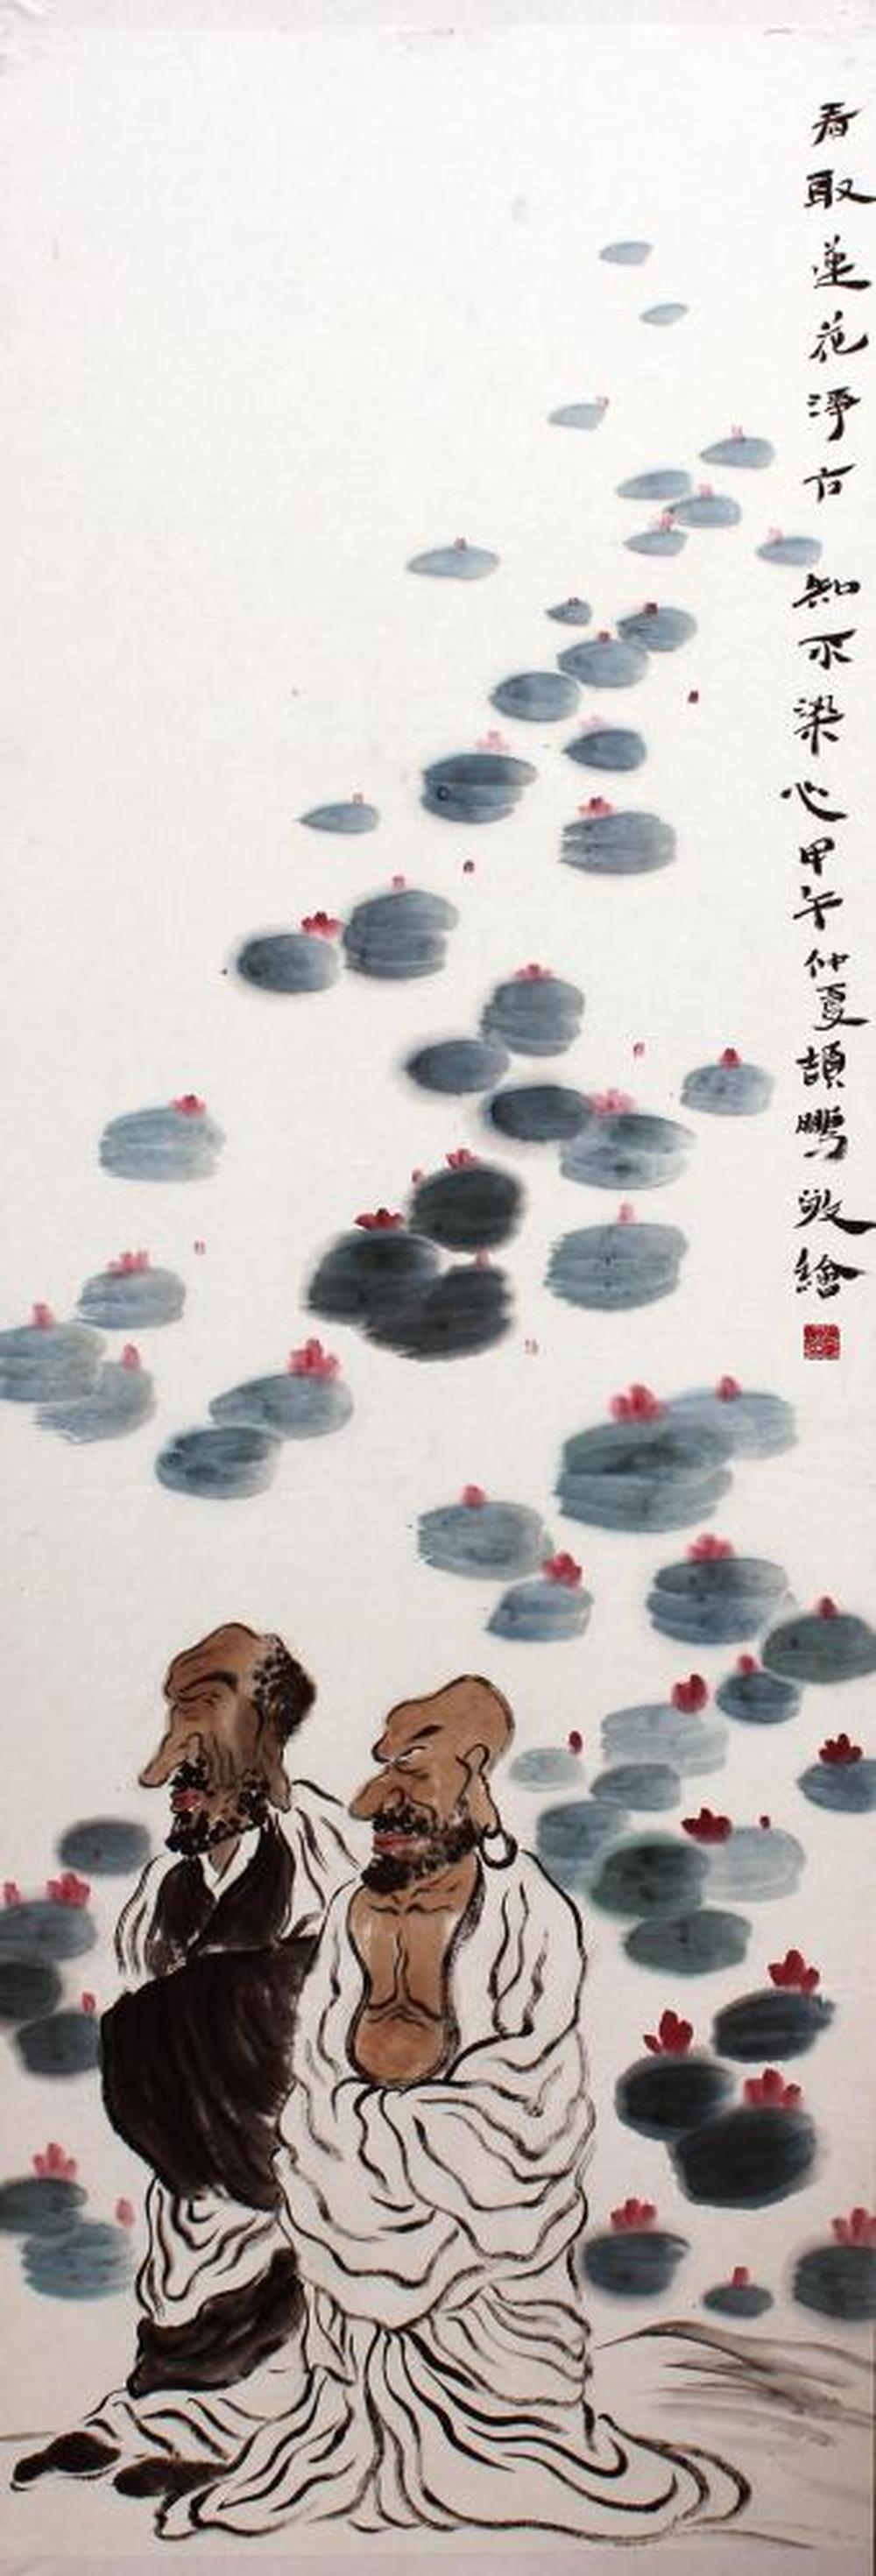 看取蓮花淨方知不染心甲午仲夏頡鵬敬繪